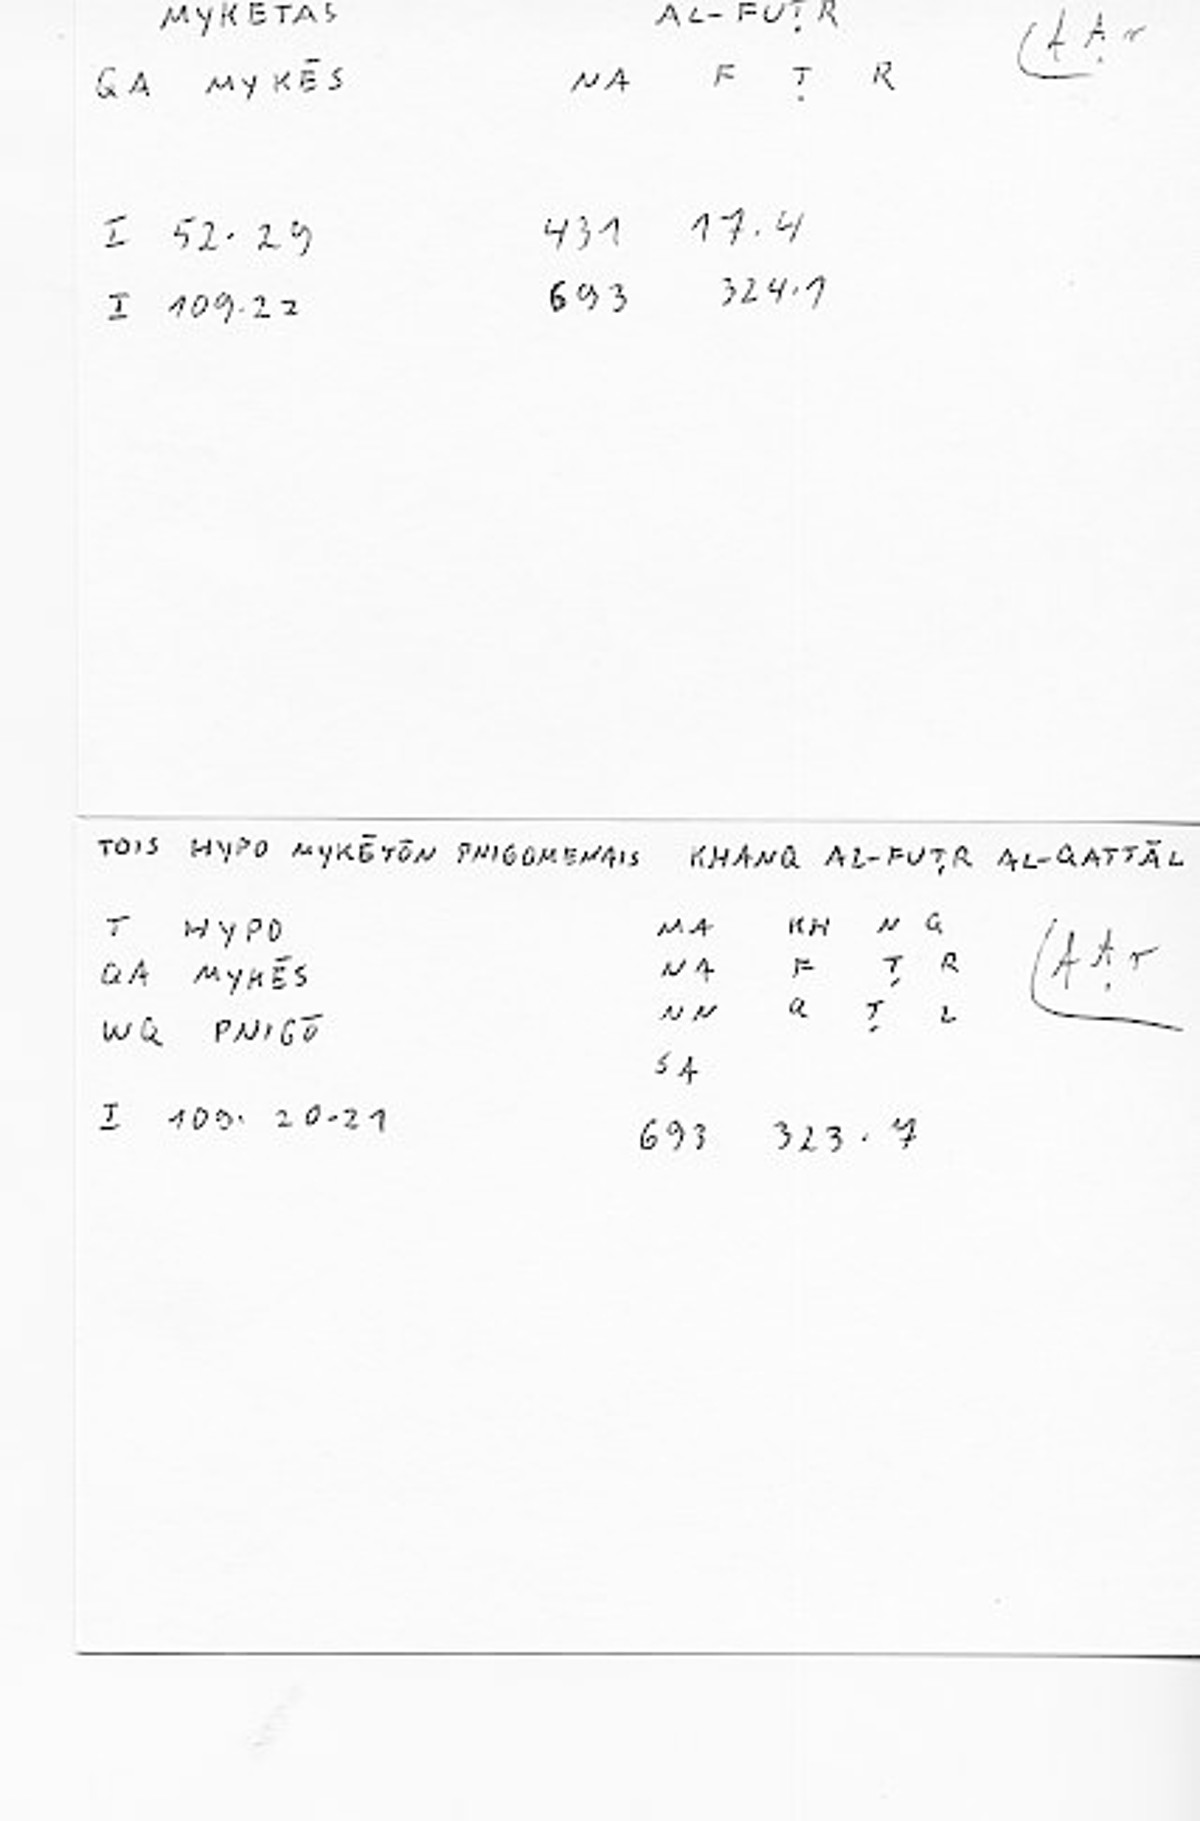 MYKETAS AL-FUṬR
QA MYKĒS NA F Ṭ R
I 52.29 431 17.4
I 109.22 693 324.1
TOIS HYPO MYKĒTŌN PNIGOMENAIS KHĀNQ AL-FUṬR AL-QATTĀL
T HYPO MA KH N Q
QA MYKĒS NA F Ṭ R
WQ PNIGŌ NN Q Ṭ L
SA
I 109. 20-21 693 323.7